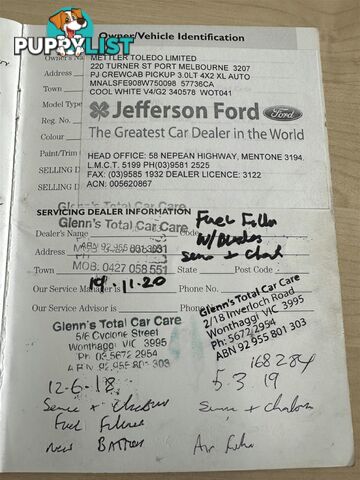 PUPPYLIST
Owner/Vehicle Identification
METTLER TOLEDO LIMITED
220 TURNER ST PORT MELBOURNE 3207
Address
PJ CREWCAB PICKUP 3.0LT 4X2 XL AUTO
MNALSFE908W750098 57736CA
Town
COOL WHITE V4/G2 340578 WOT041
Model Type
Jefferson Ford
Ford
Reg. No.
Colour
The Greatest Car Dealer in the World
Paint/Trim
HEAD OFFICE: 58 NEPEAN HIGHWAY, MENTONE 3194.
L.M.C.T. 5199 PH(03)9581 2525
SELLING D
FAX: (03)9585 1932 DEALER LICENCE: 3122
ACN: 005620867
SELLING D
SERVICING DEALER INFORMATION
Glenn's Total Car Care
Dealer's Name
Fuel Filter
W/Blades
Address
Town
MOB: 0427 058 551
State
Post Code
Our Service Manager is
19.11.20
Phone No.
Our Service Advisor is
Phone No.
Glenn's Total Car Care
5/6 Cyclone Street
Wonthaggi VIC 3995
Ph 03 5672 2954
ABN 92 955 801 303
Glenn's Total Car Care
2/18 Inverloch Road
Wonthaggi VIC 3995
Ph: 5672 2954
ABN 92 955 801 303
168284
12-6-18
5.3.19
Fuel Filter
New Battery
Air Filter